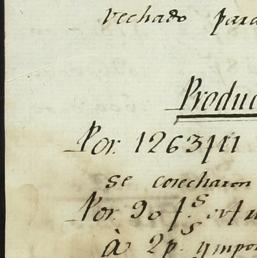 vechado para
Produc
Por. 1263
se cosecharon
Por. 90 f.s
à 2 p.s ympor